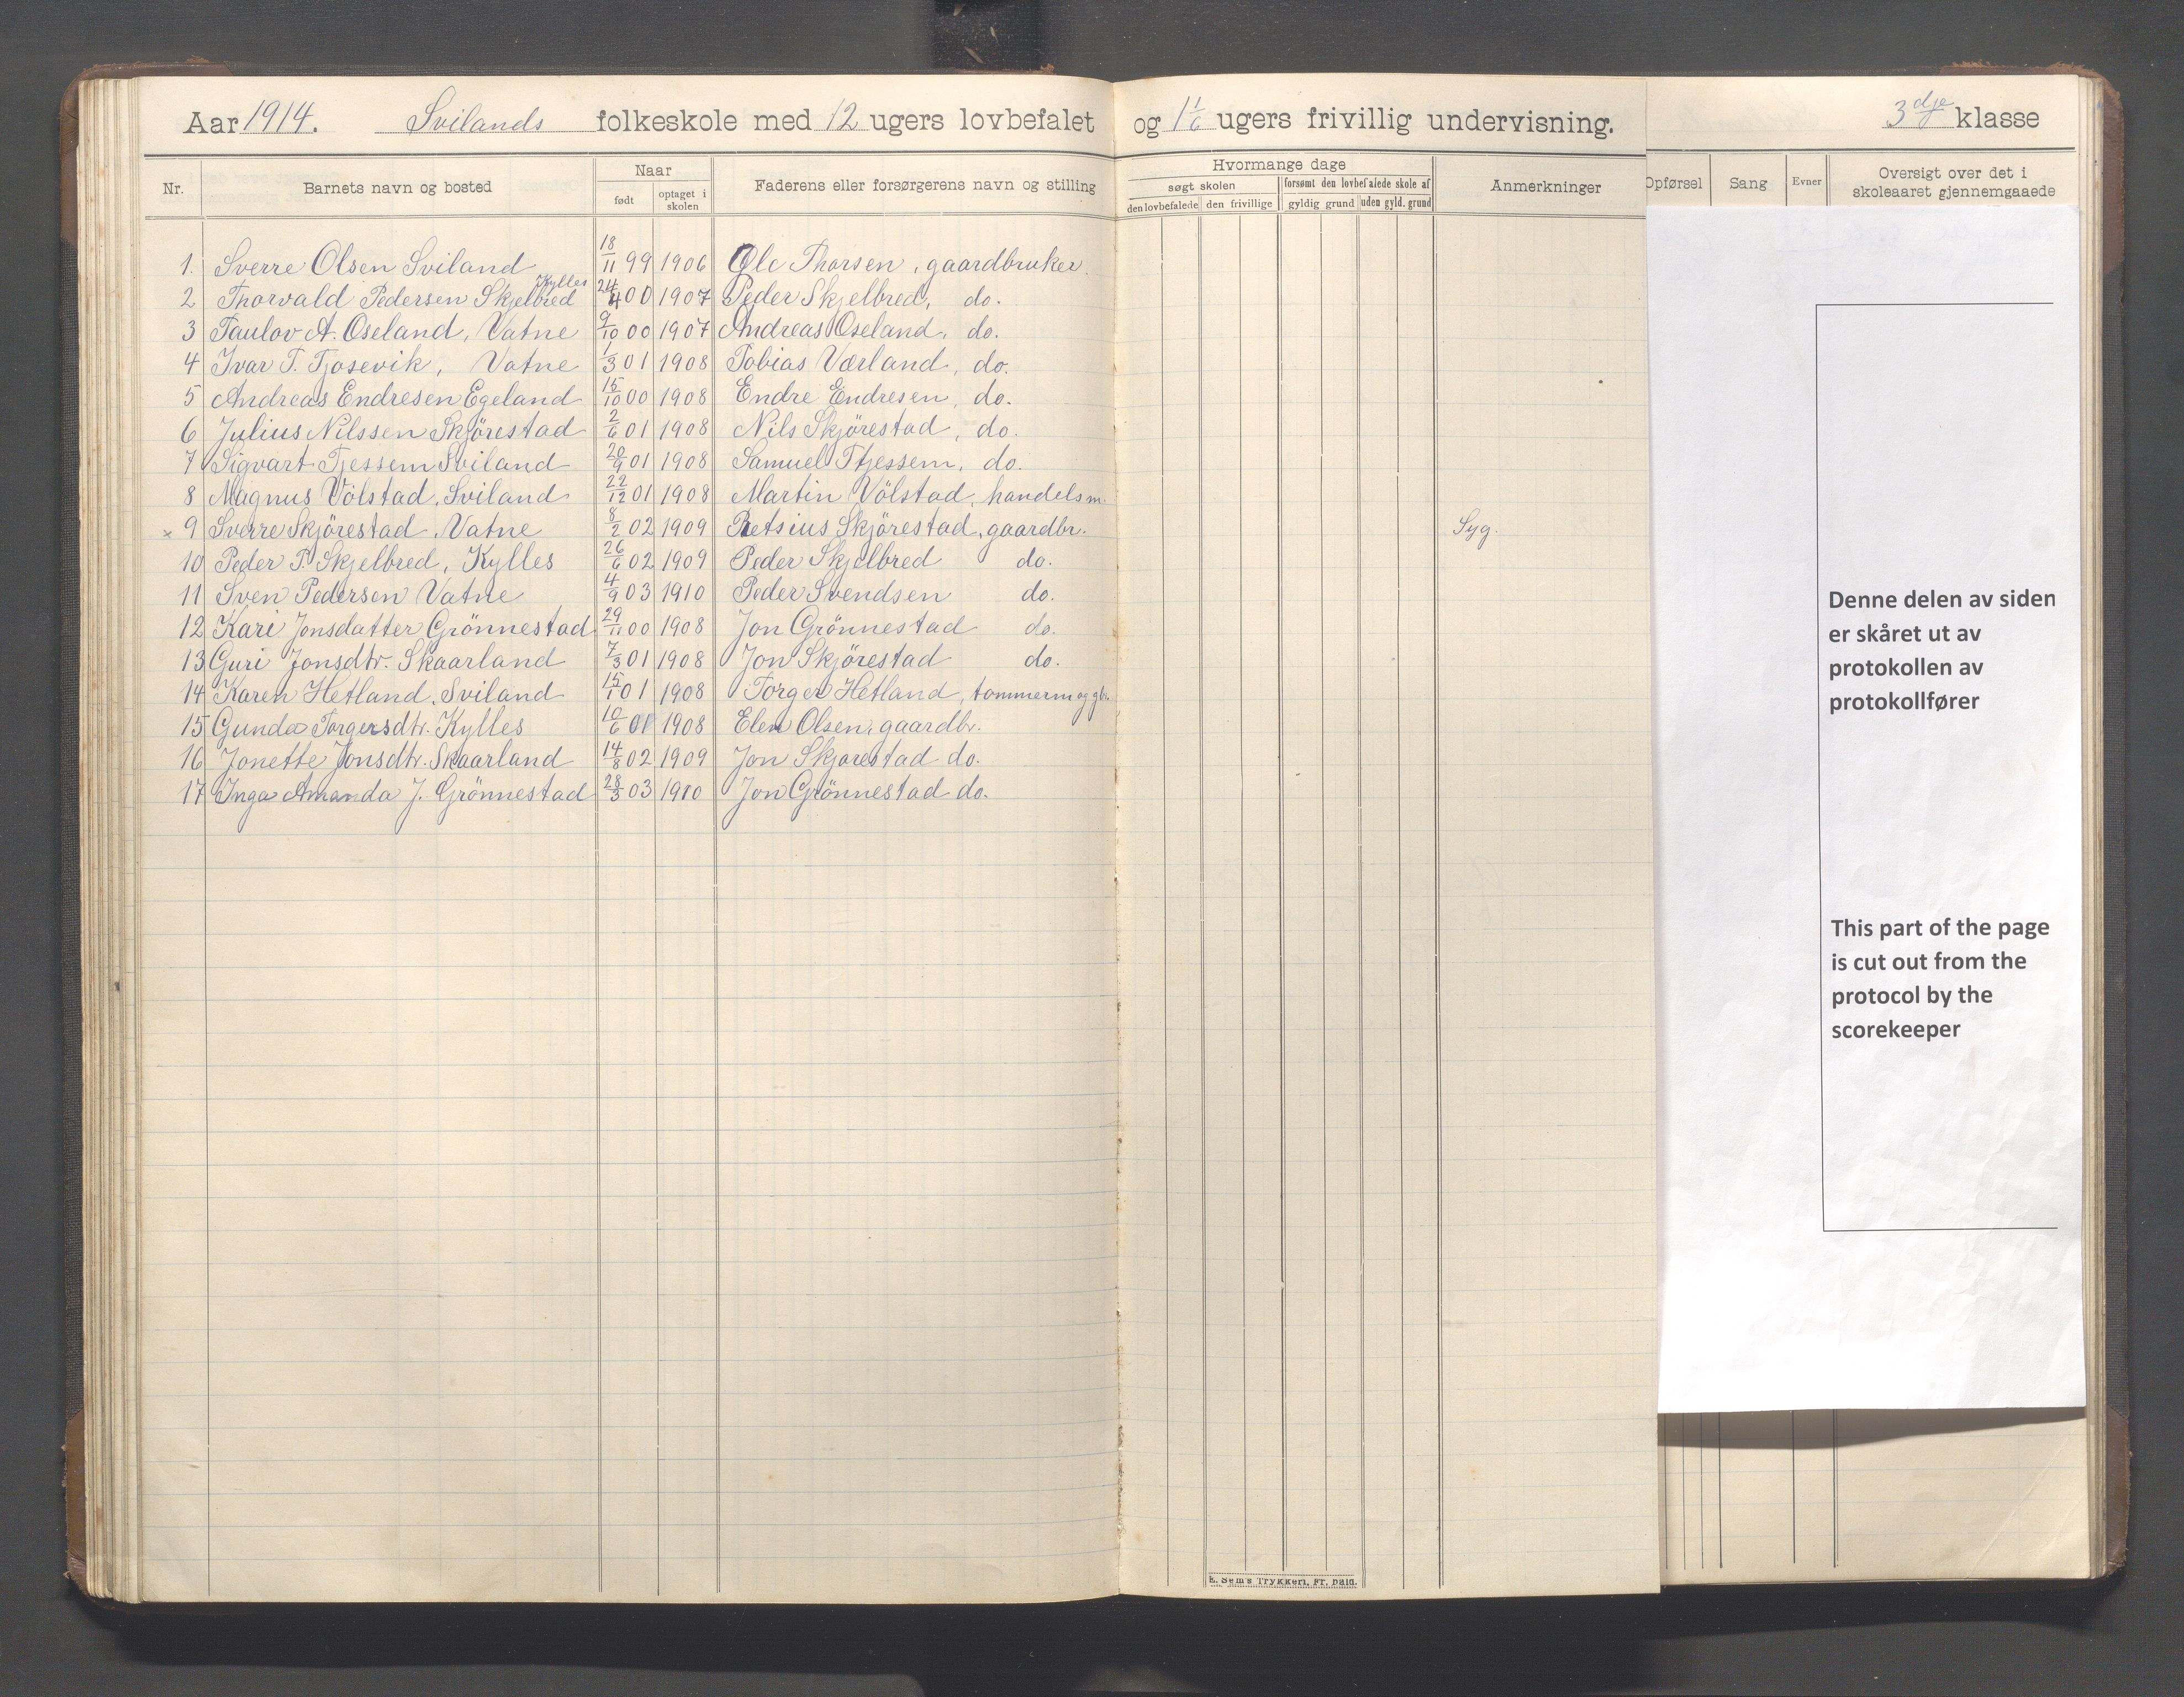 Aar 1914. Svilands folkeskole med 12 ugers lovbefalet og 1 1/6 ugers frivillig undervisning. 3dje klasse
Nr. Barnets navn og bosted Naar født optaget i skolen Faderens eller forsørgerens navn og stilling
Hvormange dage
søgt skolen forsømt den lovbefalede skole af
den lovbefalede den frivillige gyldig grund uden gyld. grund
Anmerkninger Opførsel Sang Evner Oversigt over det i skoleaaret gjennemgaaede
1. Sverre Olsen Sviland 18/11 99 1906 Ole Thorsen, gaardbruker.
2 Thorvald Pedersen Skjelbred Kylles 24/4 00 1907 Peder Skjelbred, do.
3 Taulov A. Oseland, Vatne 9/10 00 1907 Andreas Oseland, do.
4 Ivar T. Tjosevik, Vatne 1/3 01 1908 Tobias Værland, do.
5 Andreas Endresen Egeland 15/10 00 1908 Endre Endresen, do.
6 Julius Nilssen Skjörestad 2/6 01 1908 Nils Skjörestad, do.
7 Sigvart Tjessem Sviland 20/9 01 1908 Samuel Tjessem, do.
8 Magnus Völstad, Sviland 22/12 01 1908 Martin Völstad, handelsm.
x 9 Sverre Skjörestad, Vatne 8/2 02 1909 Retsius Skjörestad, gaardbr. Syg.
10 Peder P. Skjelbred, Kylles 26/6 02 1909 Peder Skjelbred do.
11 Sven Pedersen Vatne 4/9 03 1910 Peder Svendsen do.
12 Kari Jonsdatter Grönnestad 29/11 00 1908 Jon Grönnestad do.
13 Guri Jonsdtr. Skaarland 7/3 01 1908 Jon Skjörestad do.
14 Karen Hetland, Sviland 15/1 01 1908 Torger Hetland, tømmerm og gbr.
15 Gunda Torgersdtr. Kylles 10/6 01 1908 Elen Olsen, gaardbr.
16 Jonette Jonsdtr. Skaarland 14/8 02 1909 Jon Skjorestad do.
17 Inga Amanda J. Grönnestad 28/3 03 1910 Jon Grönnestad do.
Denne delen av siden
er skåret ut av
protokollen av
protokollfører
This part of the page
is cut out from the
protocol by the
scorekeeper
E. Sem's Trykkeri, Fr. hald.